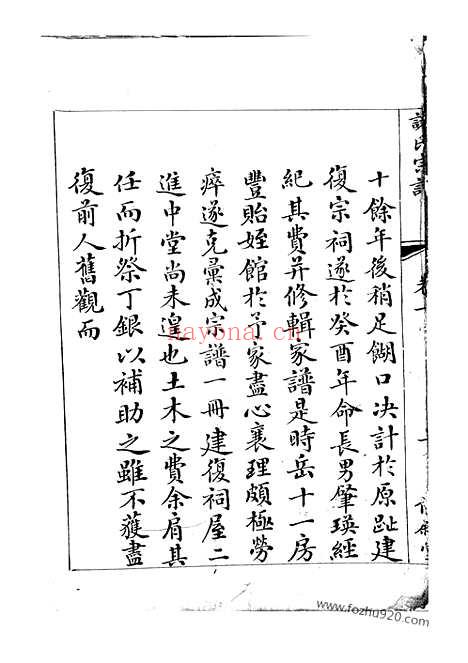 十餘年後稍足餬口決計於原趾建
復宗祠遂於癸酉年命長男肇瑛經
紀其費并修輯家譜是時岳十一房
豐貽姪館於予家盡心襄理頗極勞
瘁遂克彙成宗譜一冊建復祠屋二
進中堂尚未遑也土木之費余肩其
任而折祭丁銀以補助之雖不蒦盡
復前人舊觀而
nayona.cn
www.fozhu920.com